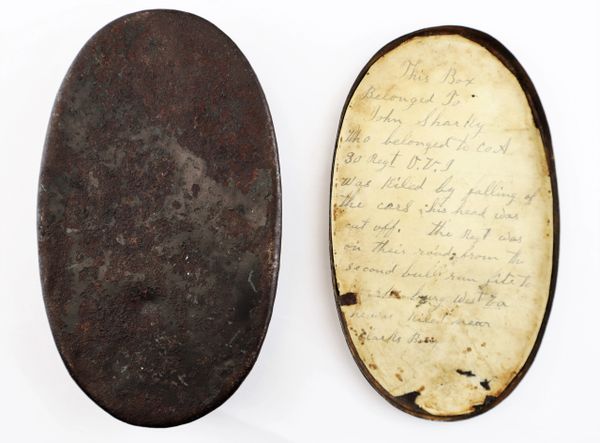 This Box
Belonged To
John Sharky
Who belonged to Co A
30 Regt O.V.I
was Killed by falling of
the cars his head was
cut off. The Regt was
on their road from the
second bull run fite to
burg West Va
he was kiled near